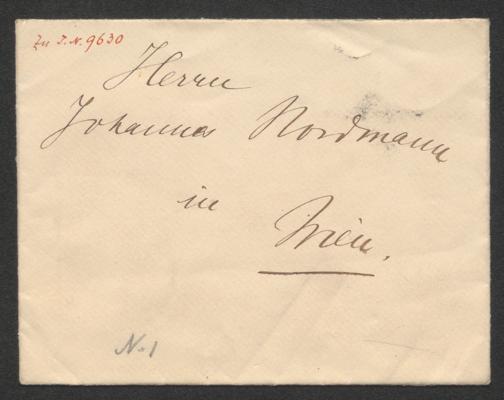 Zu I.N. 9630
Herrn
Johannes Nordmann
in
Wien.
N. 1